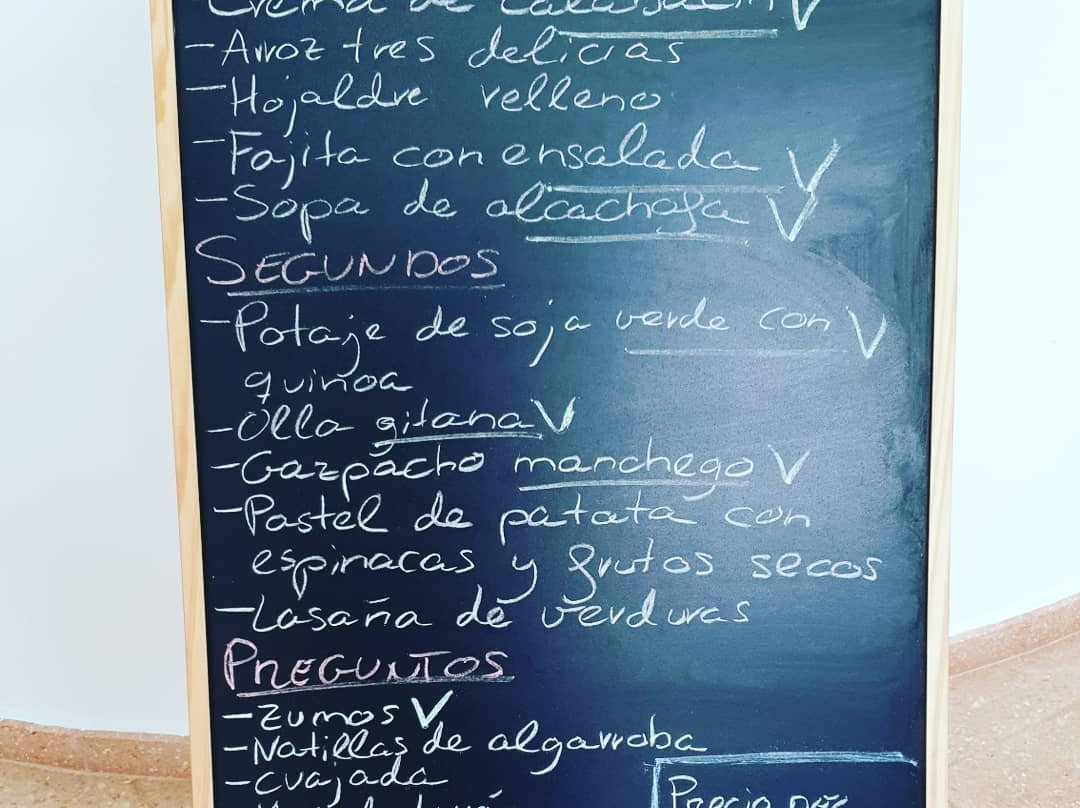 Crema de calabacín V
- Arroz tres delicias
- Hojaldre relleno
- Fajita con ensalada V
- Sopa de alcachofa V
SEGUNDOS
- Potaje de soja verde con V
quinoa
- Olla gitana V
- Gazpacho manchego V
- Pastel de patata con
espinacas y frutos secos
- Lasaña de verduras
PREGUNTOS
- Zumos V
- Natillas de algarroba
- Cuajada
Precio